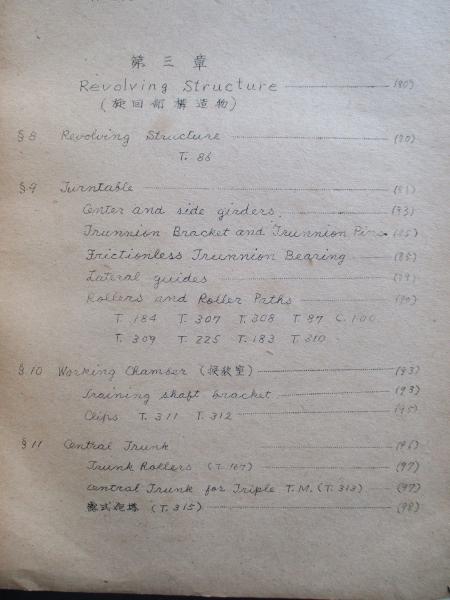 第三章
Revolving Structure (80)
(旋回部構造物)
§8 Revolving Structure (80)
T. 86
§9 Turntable (81)
Center and side girders. (83)
Trunnion Bracket and Trunnion Pins (85)
Frictionless Trunnion Bearing (88)
Lateral guides (89)
Rollers and Roller Paths (90)
T. 184 T. 307 T. 308 T. 87 C. 100
T. 309 T. 225 T. 183 T. 310
§10 Working Chamber (換装室) (93)
Training shaft bracket (93)
Clips T. 311 T. 312 (95)
§11 Central Trunk (96)
Trunk Rollers (T. 167) (97)
Central Trunk for Triple T.M. (T. 313) (97)
式砲塔 (T. 315) (98)